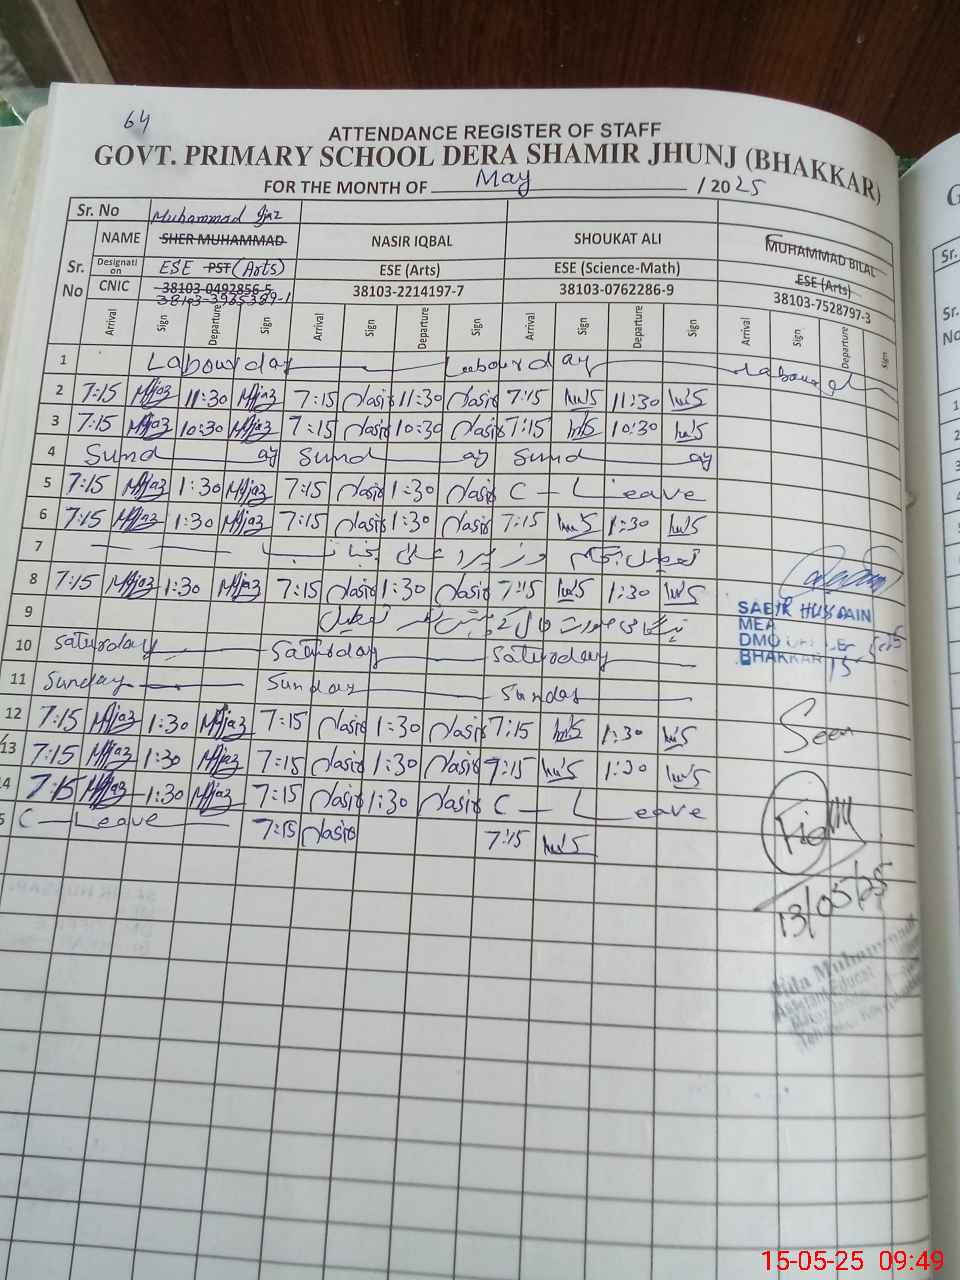 64
ATTENDANCE REGISTER OF STAFF
GOVT. PRIMARY SCHOOL DERA SHAMIR JHUNJ (BHAKKAR)
FOR THE MONTH OF May / 2025
Sr. No Muhammad Ijaz
NAME SHER MUHAMMAD NASIR IQBAL SHOUKAT ALI MUHAMMAD BILAL
Sr. No
Designation ESE PST (Arts) ESE (Arts) ESE (Science-Math) ESE (Arts)
CNIC 38103-0492856-5 38103-2214197-7 38103-0762286-9 38103-7528797-3
Arrival Sign Departure Sign Arrival Sign Departure Sign Arrival Sign Departure Sign Arrival Sign Departure Sign
1 Labour day Labour day
2 7:15 MIjaz 11:30 MIjaz 7:15 Nasir 11:30 Nasir 7:15 11:30
3 7:15 MIjaz 10:30 MIjaz 7:15 Nasir 10:30 Nasir 7:15 10:30
4 Sund ay Sund ay Sund ay
5 7:15 MIjaz 1:30 MIjaz 7:15 Nasir 1:30 Nasir C - Leave
6 7:15 MIjaz 1:30 MIjaz 7:15 Nasir 1:30 Nasir 7:15 1:30
7
8 7:15 MIjaz 1:30 MIjaz 7:15 Nasir 1:30 Nasir 7:15 1:30
SABIR HUSSAIN
MEA
DMO
BHAKKAR
9
10 Saturday Saturday Saturday
11 Sunday Sunday Sunday
12 7:15 MIjaz 1:30 MIjaz 7:15 Nasir 1:30 Nasir 7:15 1:30
Seen
13 7:15 MIjaz 1:30 MIjaz 7:15 Nasir 1:30 Nasir 7:15 1:30
4 7:15 MIjaz 1:30 MIjaz 7:15 Nasir 1:30 Nasir C - Leave
5 C - Leave 7:15 Nasir 7:15
13/05/25
15-05-25 09:49